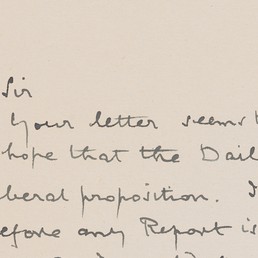 Sir
Your letter seems
hope that the Dail
beral proposition.
efore any Report is